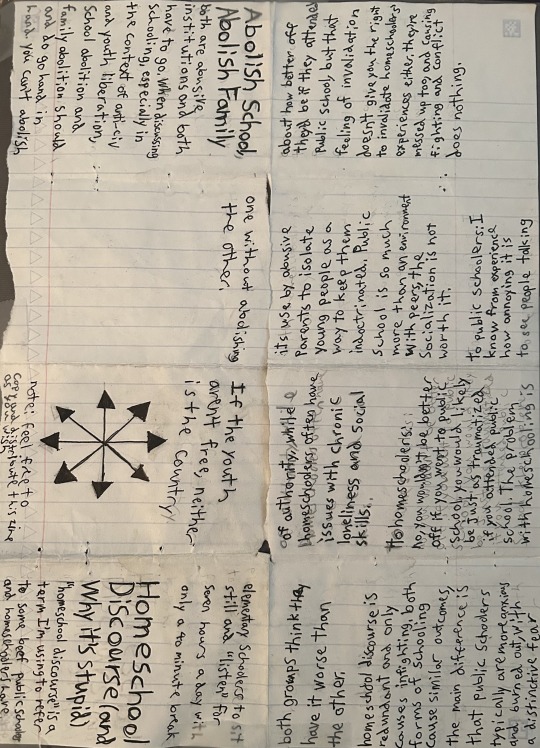 elementary schoolers to sit
still and "listen" for
seven hours a day with
only a 40 minute break
Homeschool
Discourse (and
Why it's stupid)
"homeschool discourse" is a
term I'm using to refer
to some beef public schoolers
and homeschoolers have.
both groups think they
have it worse than
the other.
homeschool discourse is
redundant and only
cause infighting, both
forms of schooling
cause similar outcomes,
the main difference is
that public Schoolers
typically are more anxious
and burned out, with
a distinctive fear
of authority, while
homeschoolers often have
issues with chronic
loneliness and social
skills.
to homeschoolers:
no, you wouldn't be better
off if you went to public
school, you would likely
be just as traumatized
if you attended public
school. The problem
with homeschooling is
its use by abusive
Parents to isolate
young people as a
way to keep them
indoctrinated. Public
School is so much
more than an enviroment
with peers, the
Socialization is not
worth it.
to public schoolers: I
know from experience
how annoying it is
to see people talking
about how better off
they'd be if they attended
Public School, but that
feeling of invalidation
doesn't give you the right
to invalidate homeschoolers'
experiences either, they're
messed up too, and causing
fighting and conflict
does nothing.
Abolish School,
Abolish Family
both are abusive
institutions and both
have to go. When discussing
schooling, especially in
the context of anti-civ
and youth liberation,
School abolition and
family abolition should
and do go hand in
hand you can't abolish
one without abolishing
the other
If the youth
arent free, neither
is the country
note: feel free to
copy and distribute this zine
as you wish